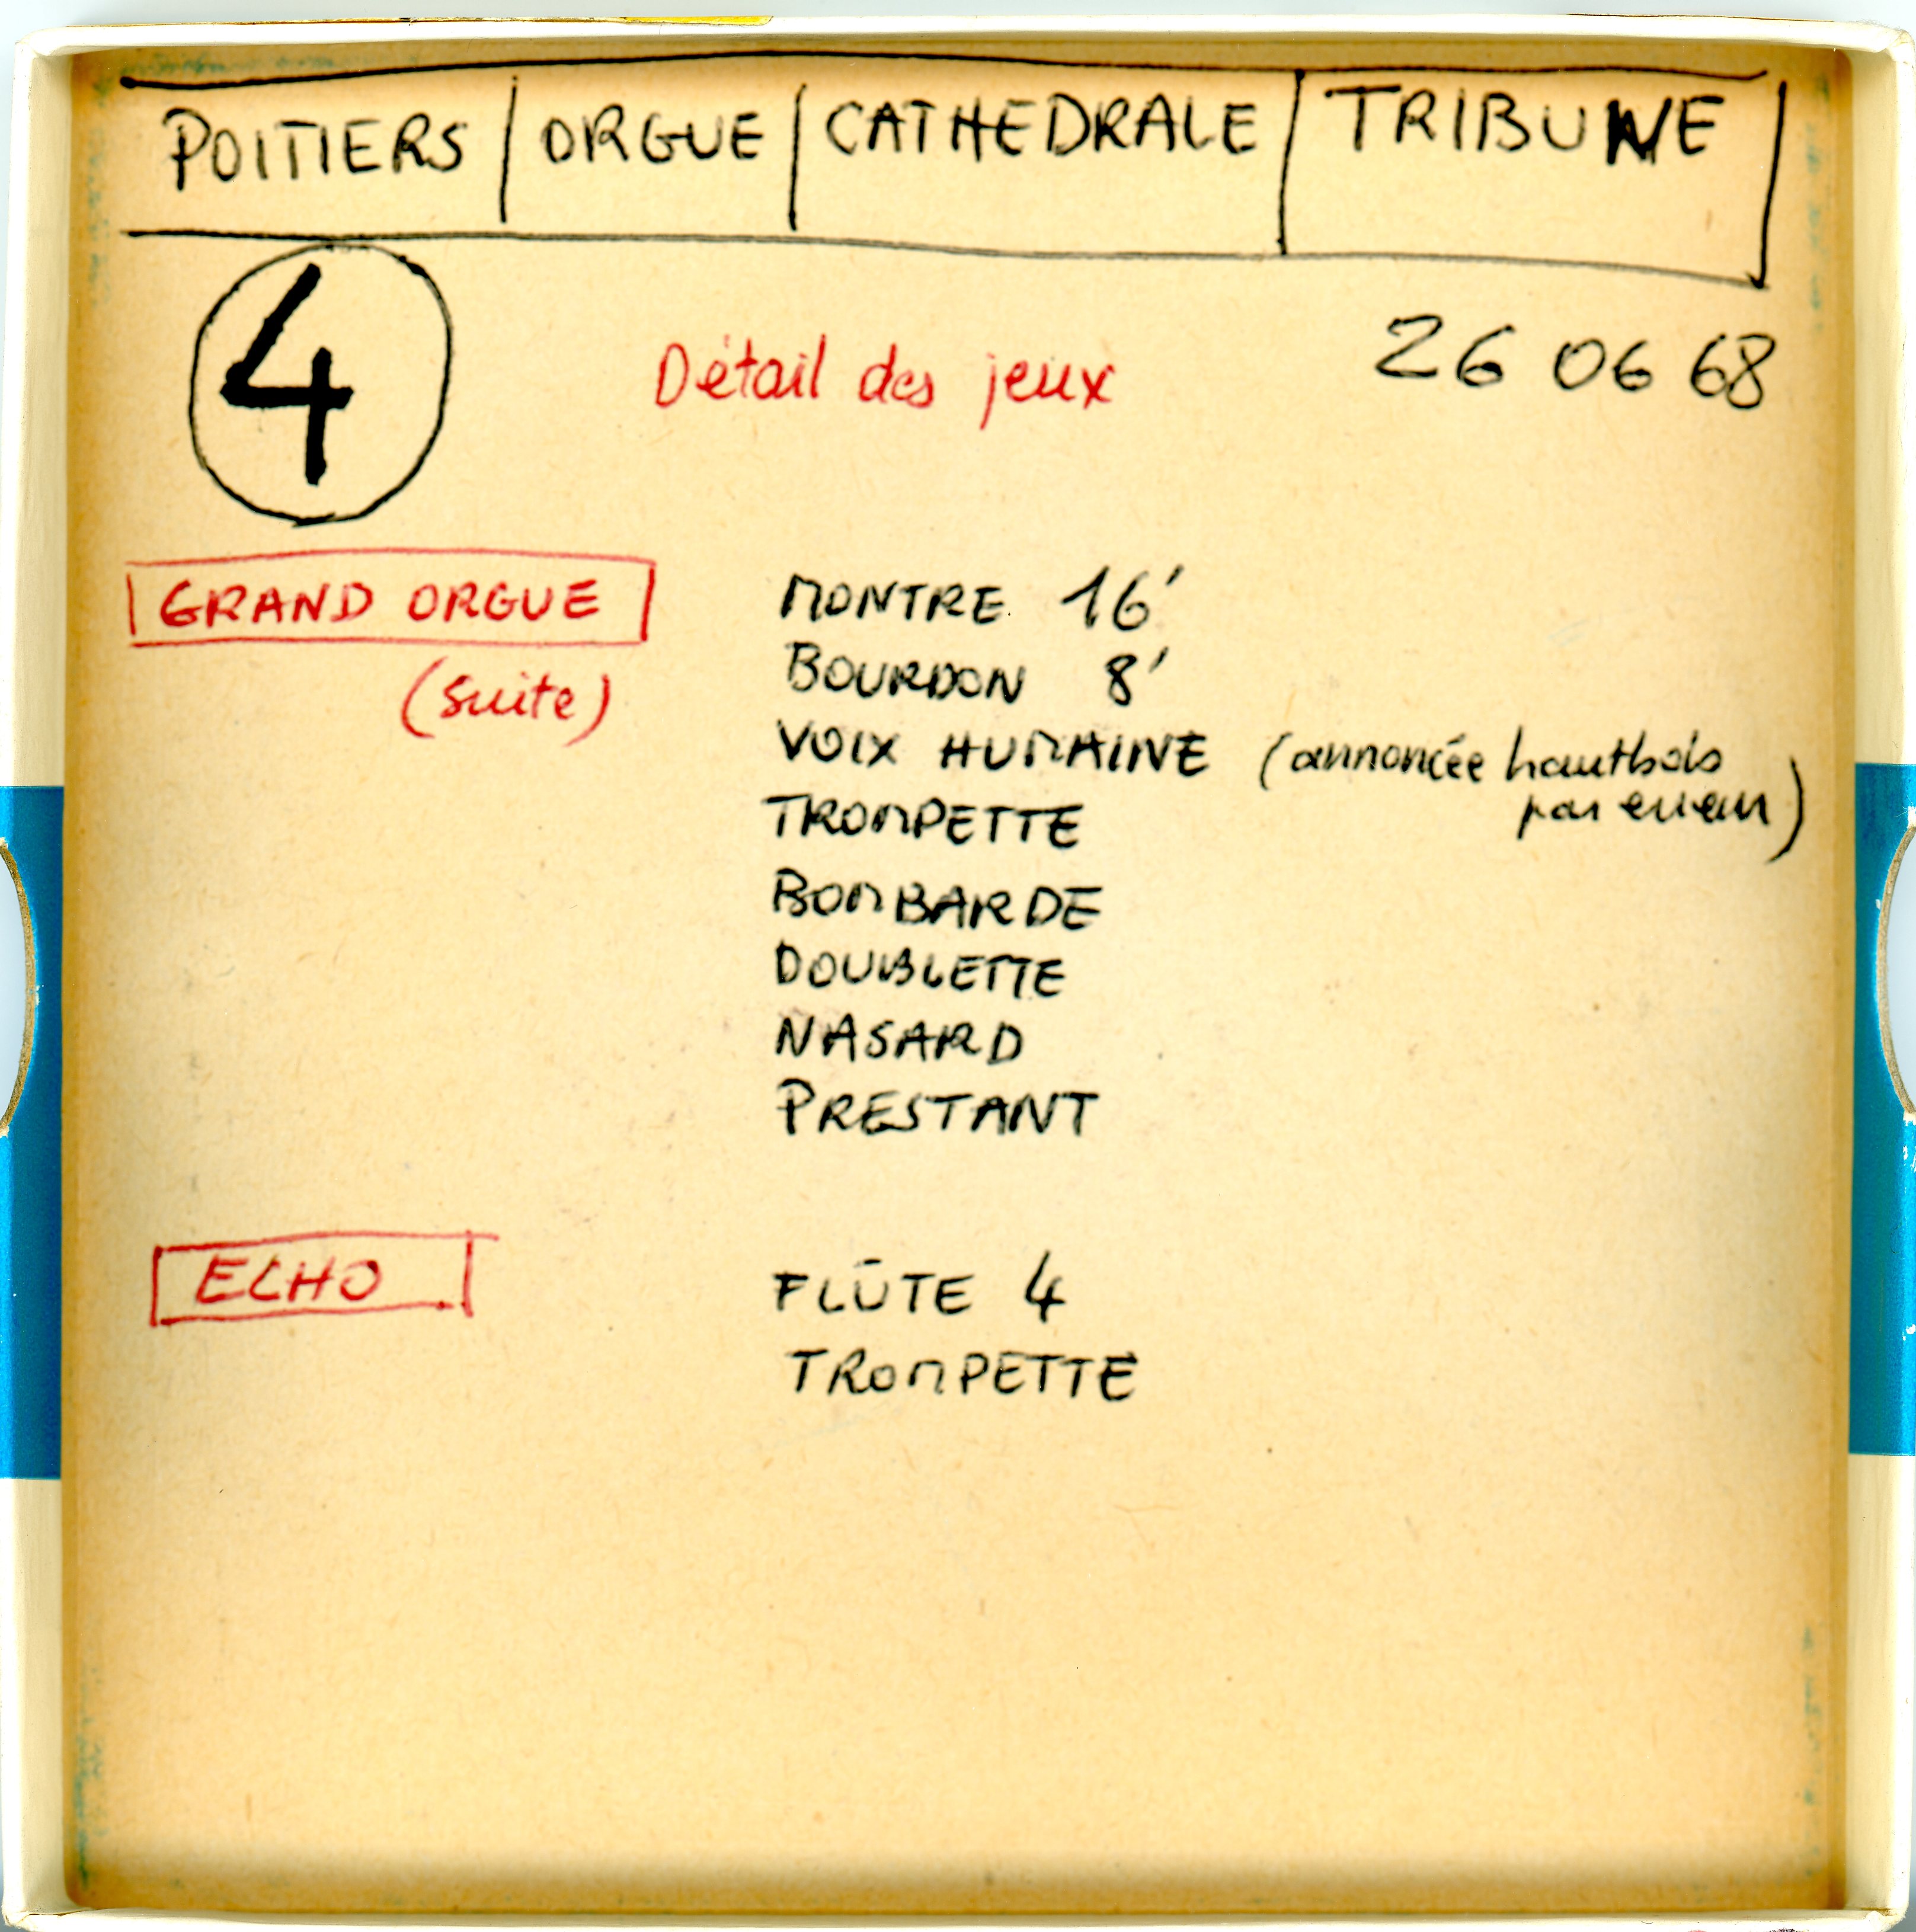 POITIERS ORGUE CATHEDRALE TRIBUNE
4 Détail des jeux 26 06 68
GRAND ORGUE MONTRE 16'
(suite) BOURDON 8'
VOIX HUMAINE (annoncée hautbois
par erreur)
TROMPETTE
BOMBARDE
DOUBLETTE
NASARD
PRESTANT
ECHO FLÛTE 4
TROMPETTE